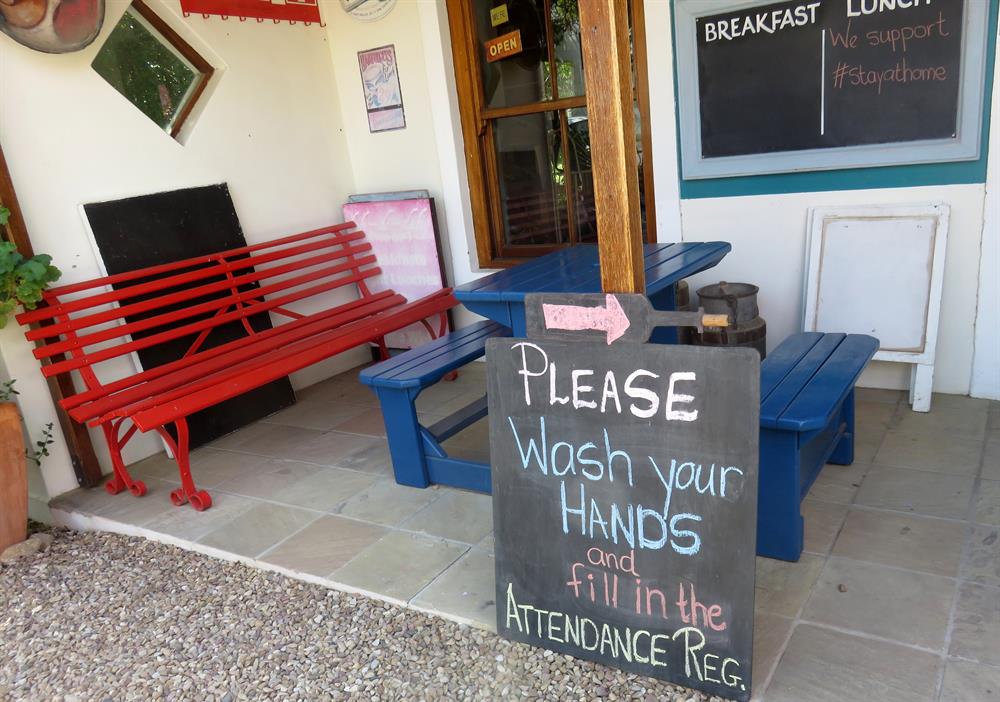 OPEN
BREAKFAST
LUNCH
We support
#Stayathome
PLEASE
Wash your
HANDS
and
fill in the
ATTENDANCE REG.